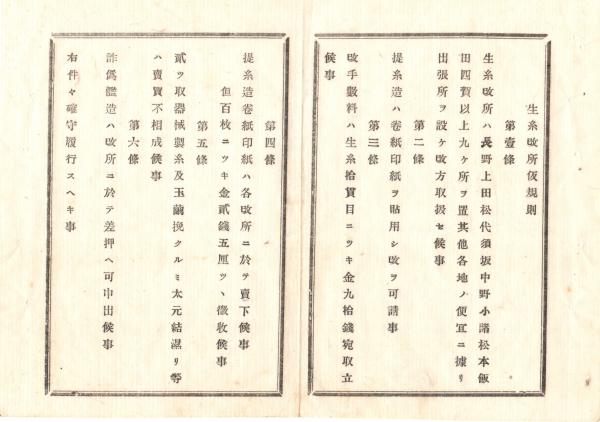 生糸改所仮規則
第壹條
生糸改所ハ長野上田松代須坂中野小諸松本飯
田四賀以上九ケ所ヲ置其他各地ノ便宜ニ據リ
出張所ヲ設ケ改方取扱セ候事
第二條
提糸造ハ卷紙印紙ヲ貼用シ改ヲ可請事
第三條
改手數料ハ生糸拾貫目ニツキ金九拾錢宛取立
候事
第四條
提糸造卷紙印紙ハ各改所ニ於テ賣下候事
但百枚ニツキ金貳錢五厘ツヽ徵收候事
第五條
貳ツ取器械製糸及玉繭挽クルミ太元結濕リ等
ハ賣買不相成候事
第六條
詐僞濫造ハ改所ニ於テ差押ヘ可申出候事
右件々確守履行スヘキ事